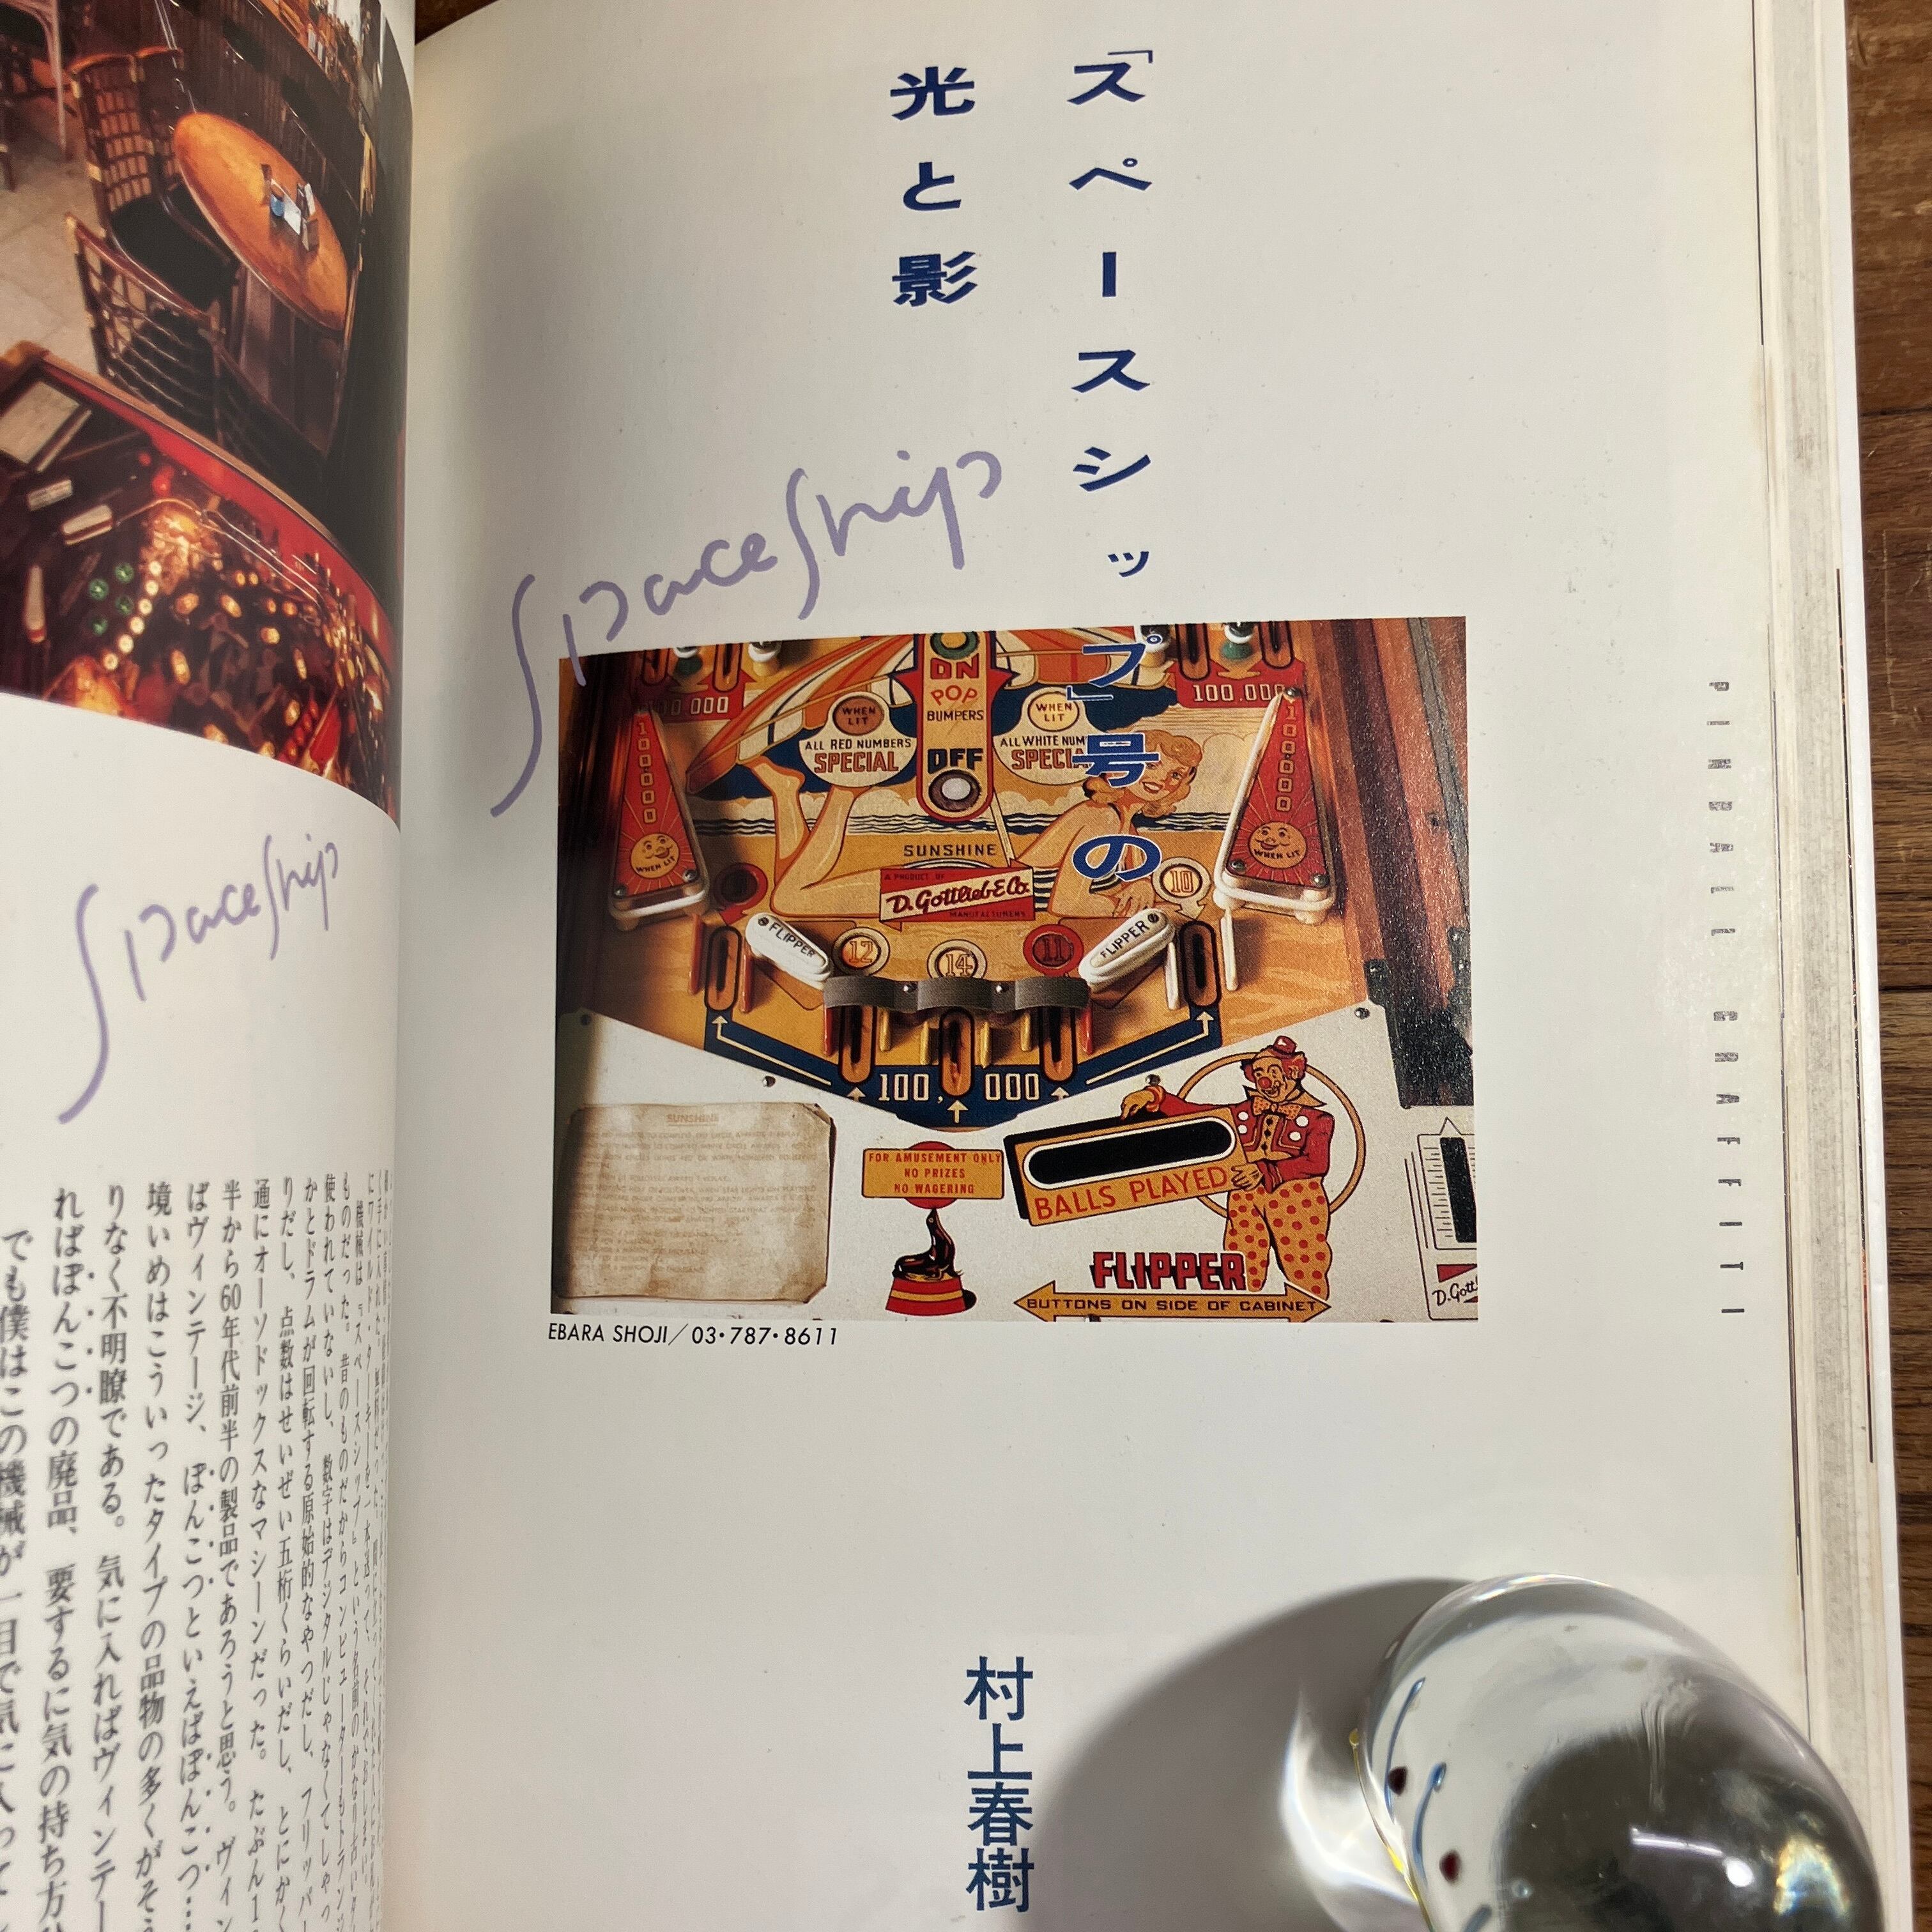 「スペースシップ」号の
光と影
SpaceShip
ON
POP
BUMPERS
OFF
WHEN LIT
WHEN LIT
ALL RED NUMBERS
SPECIAL
ALL WHITE NUM
SPECIA
100 000
100.000
100000
WHEN LIT
100000
WHEN LIT
SUNSHINE
A PRODUCT OF
D. Gottlieb & Co.
MANUFACTURERS
10
FLIPPER
FLIPPER
12
14
11
100,000
SUNSHINE
FOR AMUSEMENT ONLY
NO PRIZES
NO WAGERING
BALLS PLAYED
FLIPPER
BUTTONS ON SIDE OF CABINET
D. Gottl
EBARA SHOJI／03・787・8611
PINBALL GRAFFITI
村上春樹
SpaceShip
ものだった。昔のものだからコンピューターもトランジ
使われていないし、数字はデジタルじゃなくてしゃっ
かとドラムが回転する原始的なやつだし、フリッパー
りだし、点数はせいぜい五桁くらいだし、とにかく
通にオーソドックスなマシーンだった。たぶん1
半から60年代前半の製品であろうと思う。ヴィン
ばヴィンテージ、ぽんこつといえばぽんこつ…
境いめはこういったタイプの品物の多くがそう
りなく不明瞭である。気に入ればヴィンテー
ればぽんこつの廃品、要するに気の持ち方
でも僕はこの機械が一目で気に入って